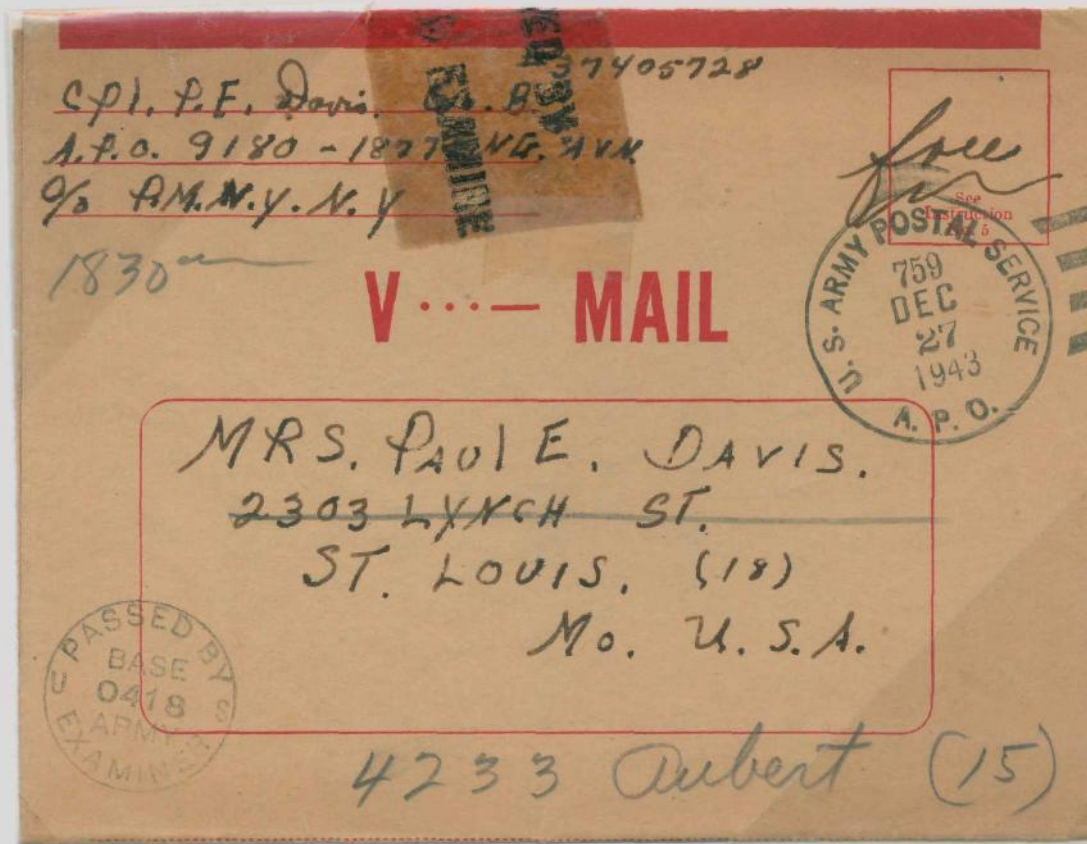 Cpl. P.E. Davis. B. 37405728
A.P.O. 9180 - 1877 NG. AVN.
c/o P.M. N.Y. N.Y
1830
EXAMINE
free
See
Instruction
No. 5
V ···— MAIL
U.S. ARMY POSTAL SERVICE
759
DEC
27
1943
A. P. O.
MRS. PAUL E. DAVIS.
2303 LYNCH ST.
ST. LOUIS. (18)
Mo. U.S.A.
PASSED BY
BASE
0418
ARMY
EXAMINER
U S
4233 Aubert (15)